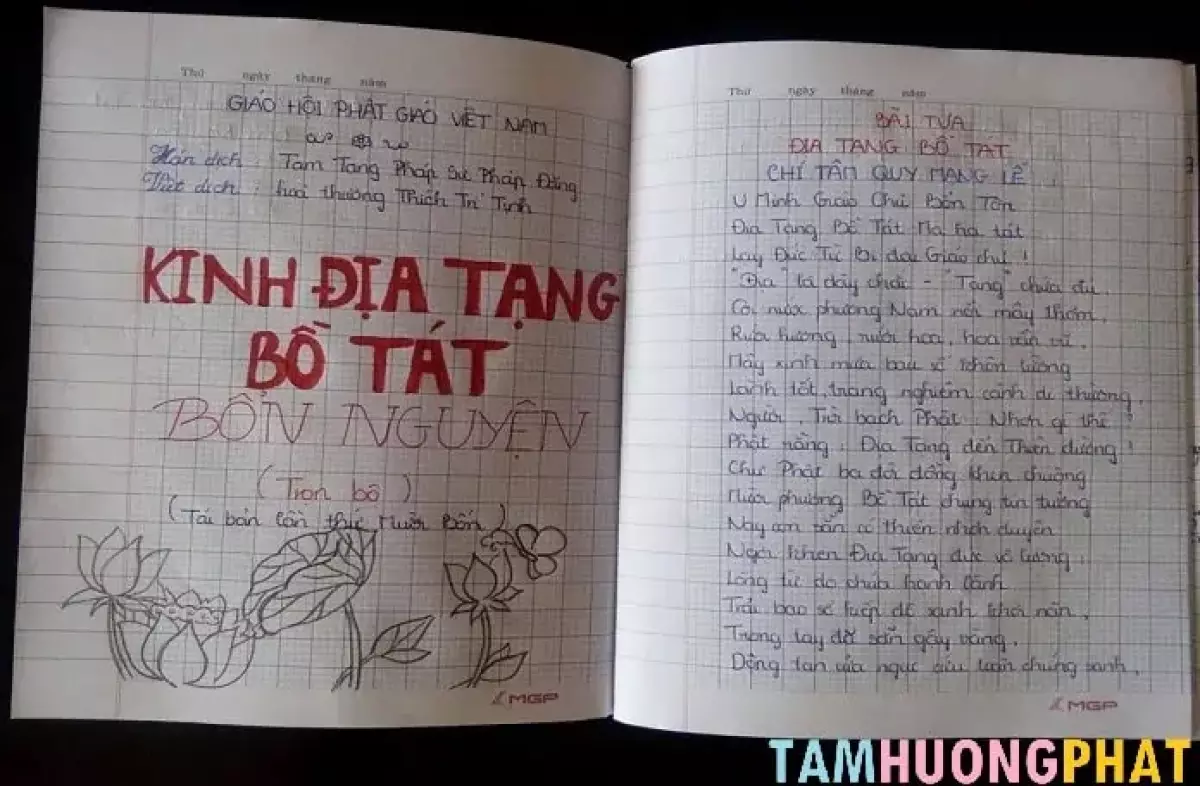 Thứ ngày tháng năm
GIÁO HỘI PHẬT GIÁO VIỆT NAM
Hán dịch : Tam Tạng Pháp Sư Pháp Đăng
Việt dịch : hoà thượng Thích Trí Tịnh
KINH ĐỊA TẠNG
BỒ TÁT
BỔN NGUYỆN
(Trọn bộ)
(Tái bản lần thứ Mười Bốn)
MGP
Thứ ngày tháng năm
BÀI TỰA
ĐỊA TẠNG BỒ TÁT
CHÍ TÂM QUY MẠNG LỄ
U Minh Giáo Chủ Bổn Tôn
Địa Tạng Bồ Tát Ma ha tát
Lạy Đức Từ Bi đại Giáo chủ !
"Địa" là dày chắc - "Tạng" chứa đủ.
Cõi nước phương Nam nổi mây thơm,
Rưới hương, rưới hoa, hoa vần vũ,
Mây xinh mưa báu số khôn lường
Lành tốt, trang nghiêm cảnh dị thường,
Người, Trời bạch Phật : Nhơn gì thế ?
Phật rằng : Địa Tạng đến Thiên đường !
Chư Phật ba đời đồng khen chuộng
Mười phương Bồ Tát chung tin tưởng
Nay con sẵn có thiện nhơn duyên
Ngợi khen Địa Tạng đức vô lượng :
Lòng từ do chứa hạnh lành
Trải bao số kiếp độ sanh khỏi nàn,
Trong tay đã sẵn gậy vàng,
Dộng tan cửa ngục cứu toàn chúng sanh,
MGP
TAMHUONGPHAT